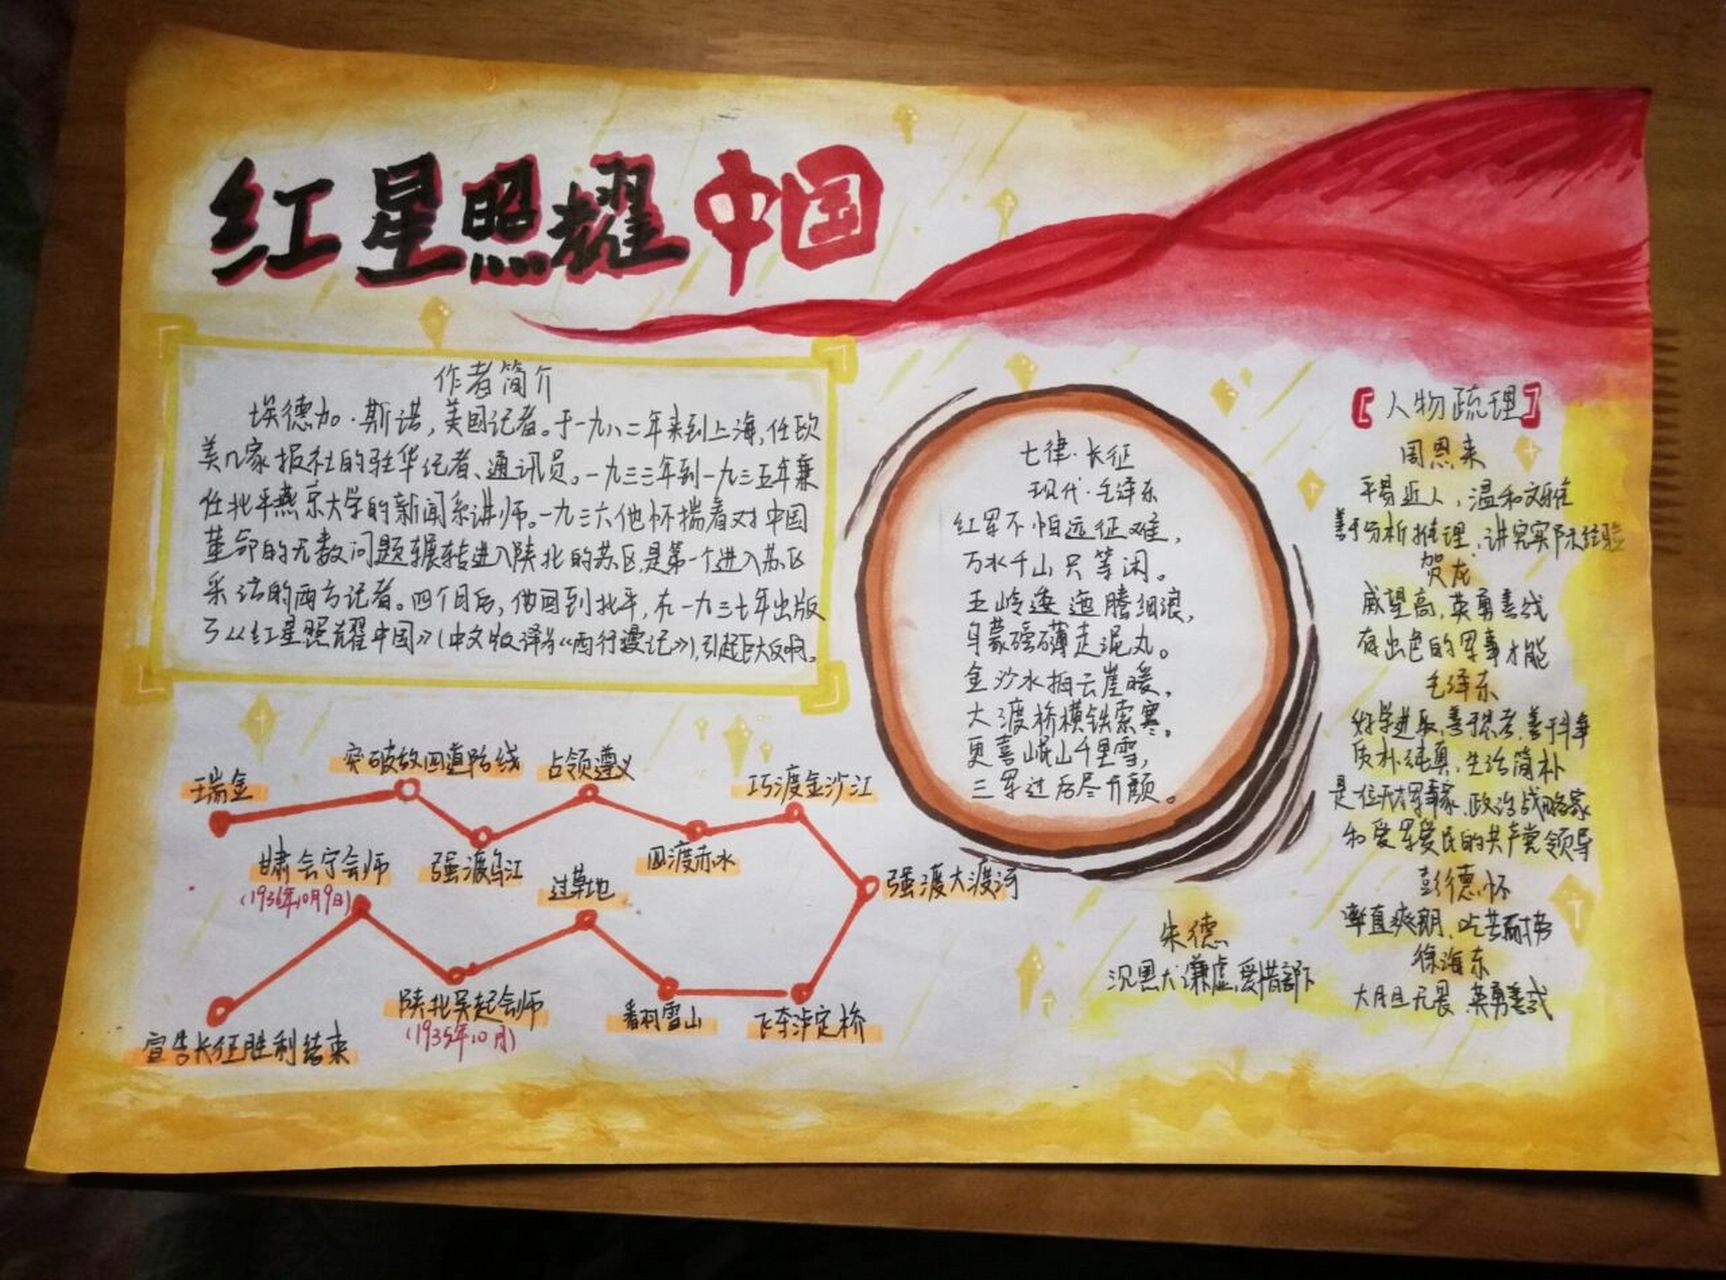 红星照耀中国
作者简介
埃德加·斯诺，美国记者。于一九八二年来到上海，任欧
美几家报社的驻华记者、通讯员。一九三三年到一九三五年兼
任北平燕京大学的新闻系讲师。一九三六他怀揣着对中国
革命的无数问题辗转进入陕北的苏区，是第一个进入苏区
采访的西方记者。四个月后，他回到北平，在一九三七年出版
了《红星照耀中国》(中文版译为《西行漫记》)，引起巨大反响。
七律·长征
现代·毛泽东
红军不怕远征难，
万水千山只等闲。
五岭逶迤腾细浪，
乌蒙磅礴走泥丸。
金沙水拍云崖暖，
大渡桥横铁索寒。
更喜岷山千里雪，
三军过后尽开颜。
【人物疏理】
周恩来
平易近人，温和文雅
善于分析推理，讲究实际经验
贺龙
威望高，英勇善战
有出色的军事才能
毛泽东
好学进取，善于思考，善于斗争
质朴纯真，生活简朴
是位军事家，政治战略家
和爱军爱民的共产党领导
彭德怀
率直爽朗，吃苦耐劳
徐海东
大胆无畏，英勇善战
朱德
沉思犬谦虚，爱惜部下
瑞金
突破敌四道防线
强渡乌江
占领遵义
四渡赤水
巧渡金沙江
强渡大渡河
飞夺泸定桥
翻雪山
过草地
陕北吴起会师
(1935年10月)
甘肃会宁会师
(1936年10月9日)
宣告长征胜利结束